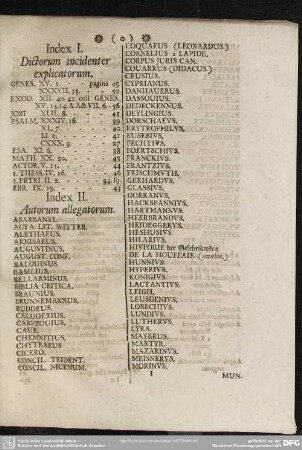 ( o )
Index I.
Dictorum incidenter
explicatorum.
GENES. XV. 1. - - pagina 49
XXXVII. 15. - - 50
EXOD. XII. 40. 41. coll GENES.
XV. 13. 14. & Act. VII. 6. - 56
JOBI XLII. 8. - - 45
PSALM. XXXIV. 16. - - 39
XL. 7. - - 40
LI. 9. - - 41
CXXX. - - 27
ESA. XI. 6. - - 38
MATH. XX. 20. - - 45
ACTOR. V. 15. - - 44
1. THESS. IV. 16. - - 46
1. PETRI II. 2. - -
EBR. IX. 19. - - 43
Index II.
Autorum allegatorum.
ABARBANEL.
ACTA LIT. WITTEB.
ALETHAEUS.
ARNISAEUS,
AUGUSTINUS,
AUGUST. CONF.
BALDUINUS,
BASILIUS,
BELLARMINUS,
BIBLIA CRITICA,
BRAUNIUS,
BRUNNEMANNUS,
BUDDEUS,
CALUOERIUS,
CARPZOUIUS,
CAUR.
CHEMNITIUS,
CHYTRAEUS,
CICERO,
CONCIL. TRIDENT.
CONCIL. NICENUM.
COQUAEUS (LEONARDUS)
CORNELIUS a LAPIDE,
CORPUS JURIS CAN.
COUARRUS (DIDACUS)
CRUSIUS,
CYPRIANUS,
DANHAUERUS,
DASSOUIUS,
DEDECKENNUS,
DEYLINGIUS,
DORSCHAEUS,
ERYTROPHILUS,
EUSEBIUS,
FECHTIUS,
FOERTSCHIUS,
FRANCKIUS,
FRANTZIUS,
FRISCHMUTH,
GERHARDUS,
GLASSIUS,
GORRANUS,
HACKSPANNIUS,
HARTMANNUS,
HEERBRANDUS,
HEIDEGGERUS,
HESHUSIUS,
HILARIUS,
HISTORIE der Gelehrsamkeit
DE LA HOUSSAIE (amelot.)
HUNNIUS,
HYPERIUS,
KONIGIUS,
LACTANTIUS,
LEIGH,
LEUSDENIUS,
LOBECHIUS,
LUNDIUS,
LUTHERUS,
LYRA,
MAYERUS,
MARTYR,
MAZARINUS,
MEISNERUS,
MORINUS,
I
MUN.